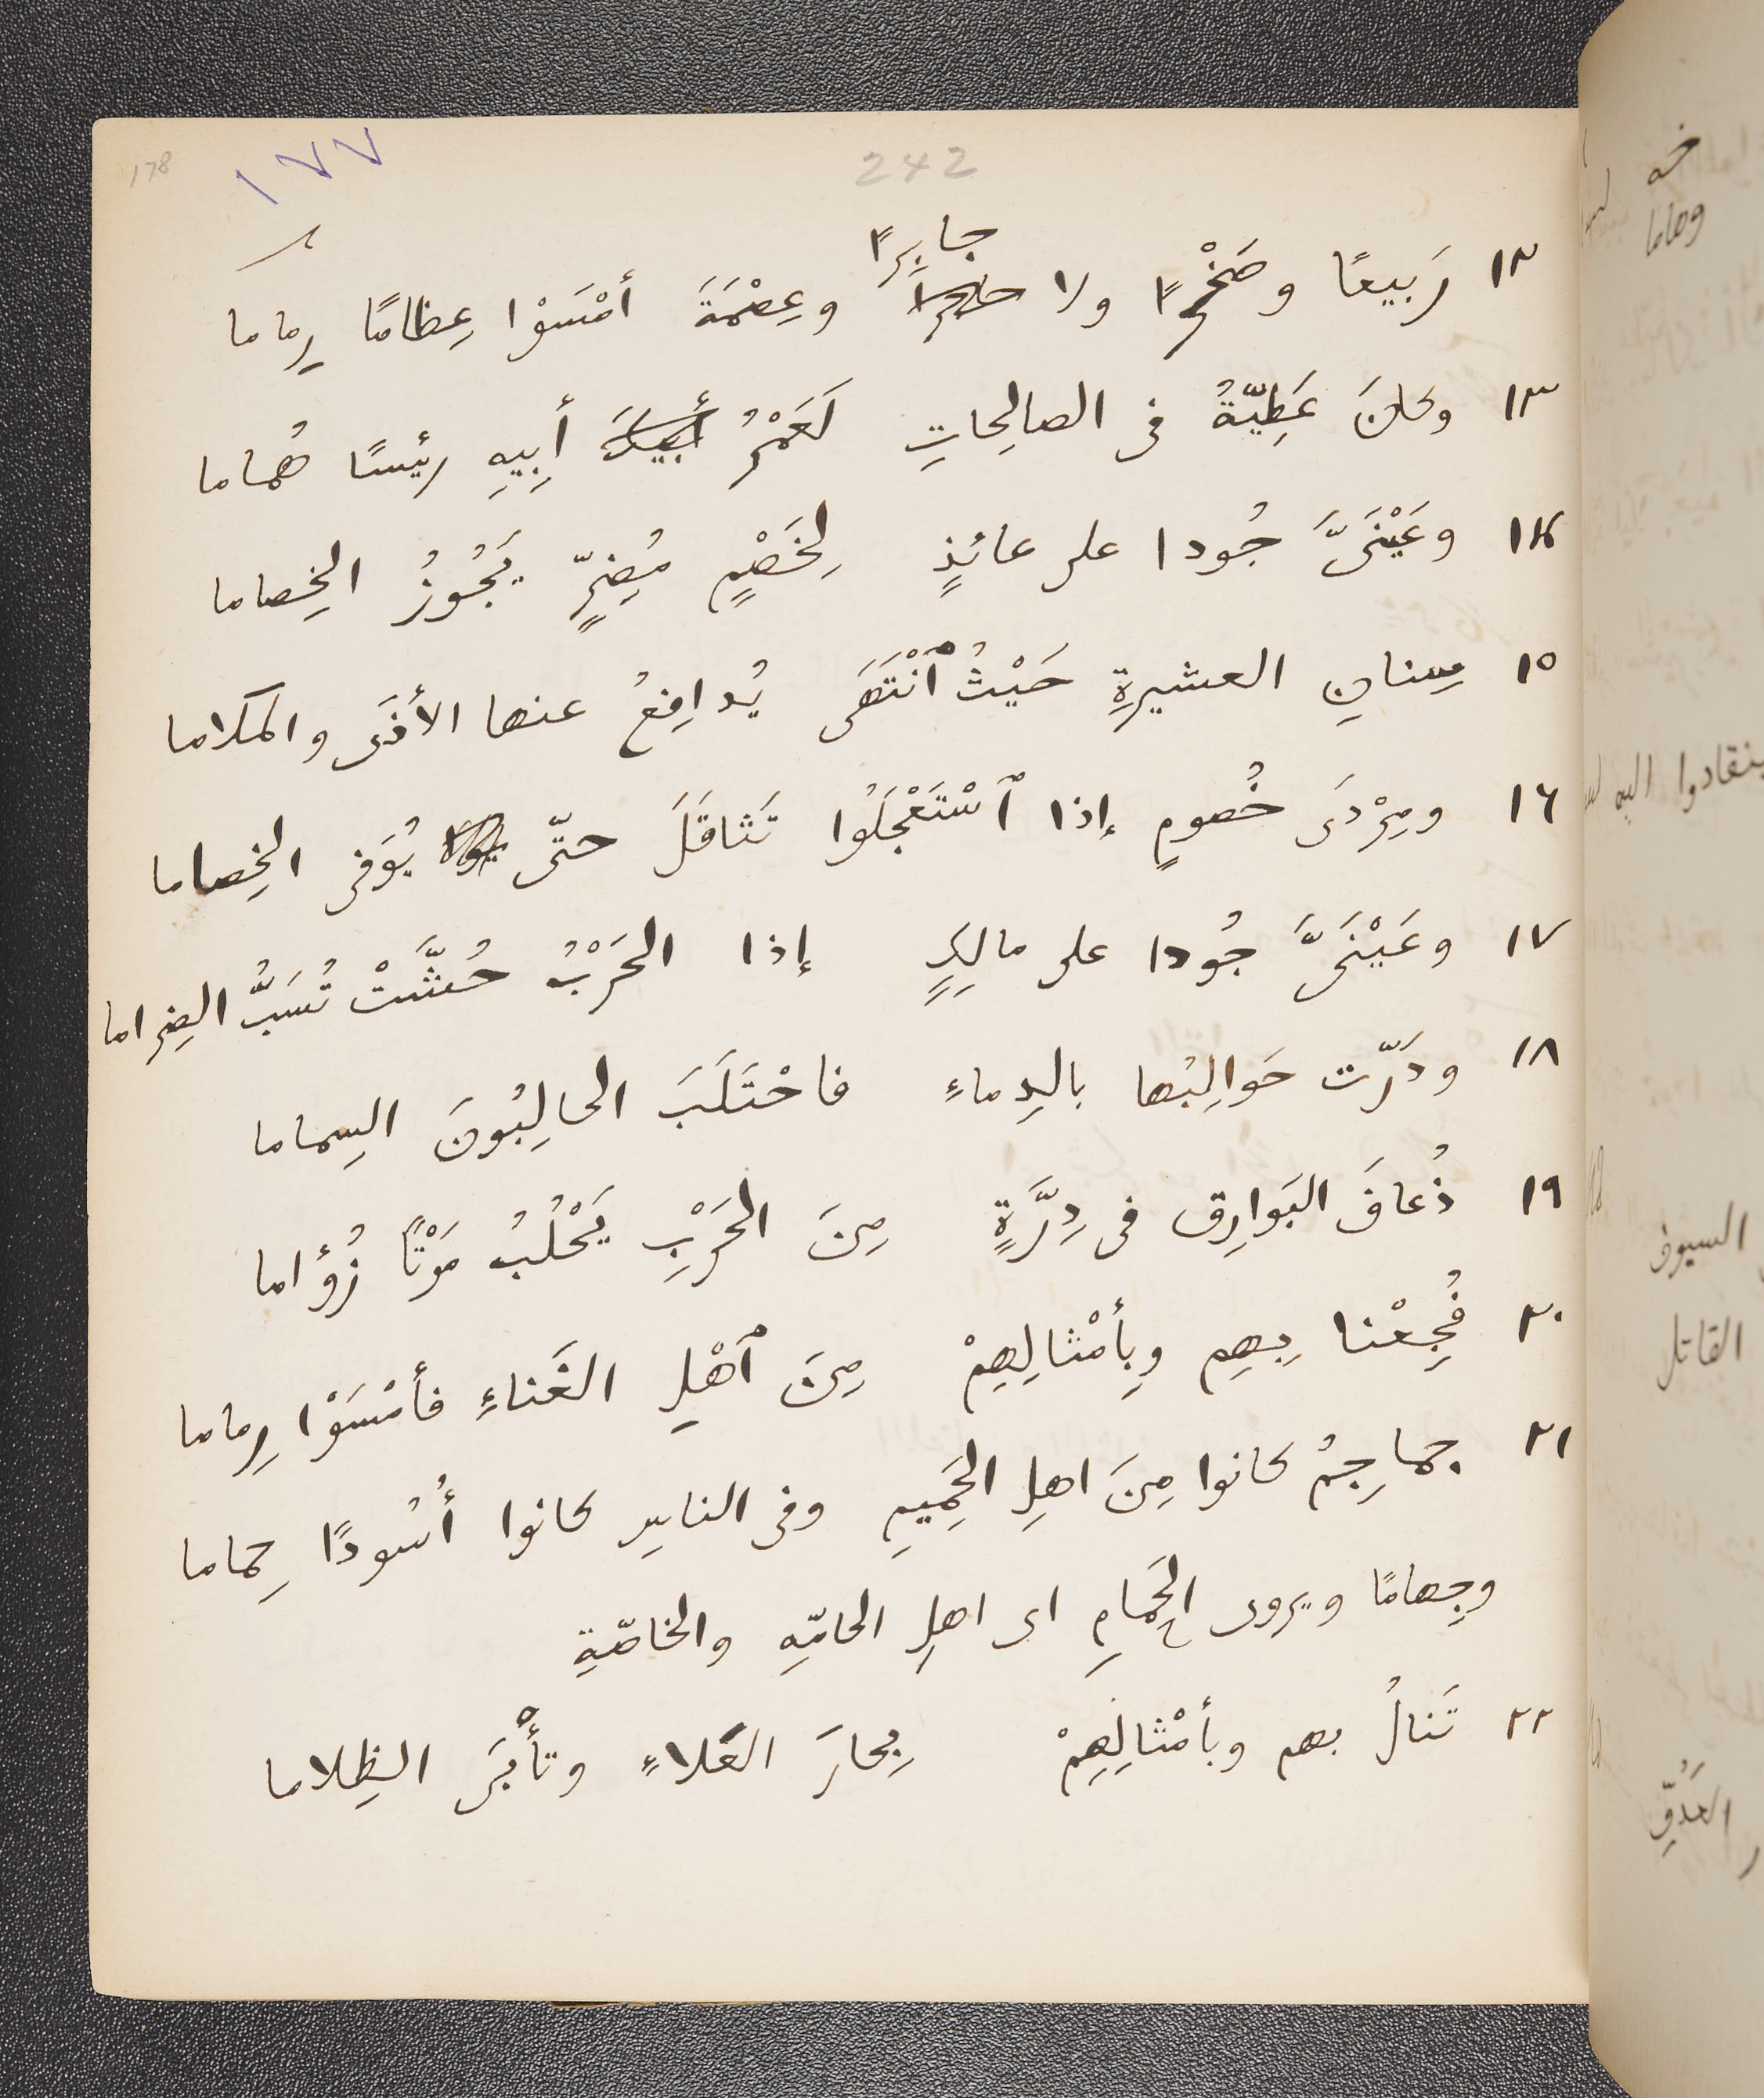 178 ١٧٧ 242
جابرًا
١٢ رَبيعًا وصَخْرًا ولا وعِصْمَةَ أمْسَوْا عِظامًا رِماما
١٣ وكانَ عَطِيّةُ فى الصالِحاتِ لَعَمْرُ أبيكَ أبِيهِ رئيسًا هُماما
١٤ وعَيْنَىَّ جُودا على عائذٍ لِخَصْمٍ مُضِرٍّ يَجُوزُ الخِصاما
١٥ سِنانِ العشيرةِ حَيْثُ ٱنْتَهَى يُدافِعُ عنها الأذَى والكلاما
١٦ ومِرْدَى خُصومٍ إذا ٱسْتَعْجَلُوا تَثاقَلَ حتّى يُوَفى الخِصاما
١٧ وعَيْنَىَّ جُودا على مالِكٍ إذا الحَرْبُ حُشَّتْ تُشَبُّ الضِراما
١٨ ودَرّت حَوالِبُها بالدِماءِ فاحْتَلَبَ الحالِبُونَ السِماما
١٩ ذُعافَ البَوارِق فى دِرَّةٍ مِنَ الحَرْبِ يَحْلُبُ مَوْتًا زُؤاما
٢٠ فُجِعْنا بِهِم وبِأمْثالِهِمْ مِنَ ٱهْلِ الغَناءِ فأمْسَوْا رِماما
٢١ جماجِمُ كانوا مِنَ اهلِ الحَمِيمِ وفى الناسِ كانوا أُسُودًا حِماما
وجِهامًا ويروى الحَمامِ اى اهلِ الحامّةِ والخاصّةِ
٢٢ تَنالُ بهم وبأمْثالِهِمْ بِحارَ العَلاءِ وتأْبَى الظِلاما